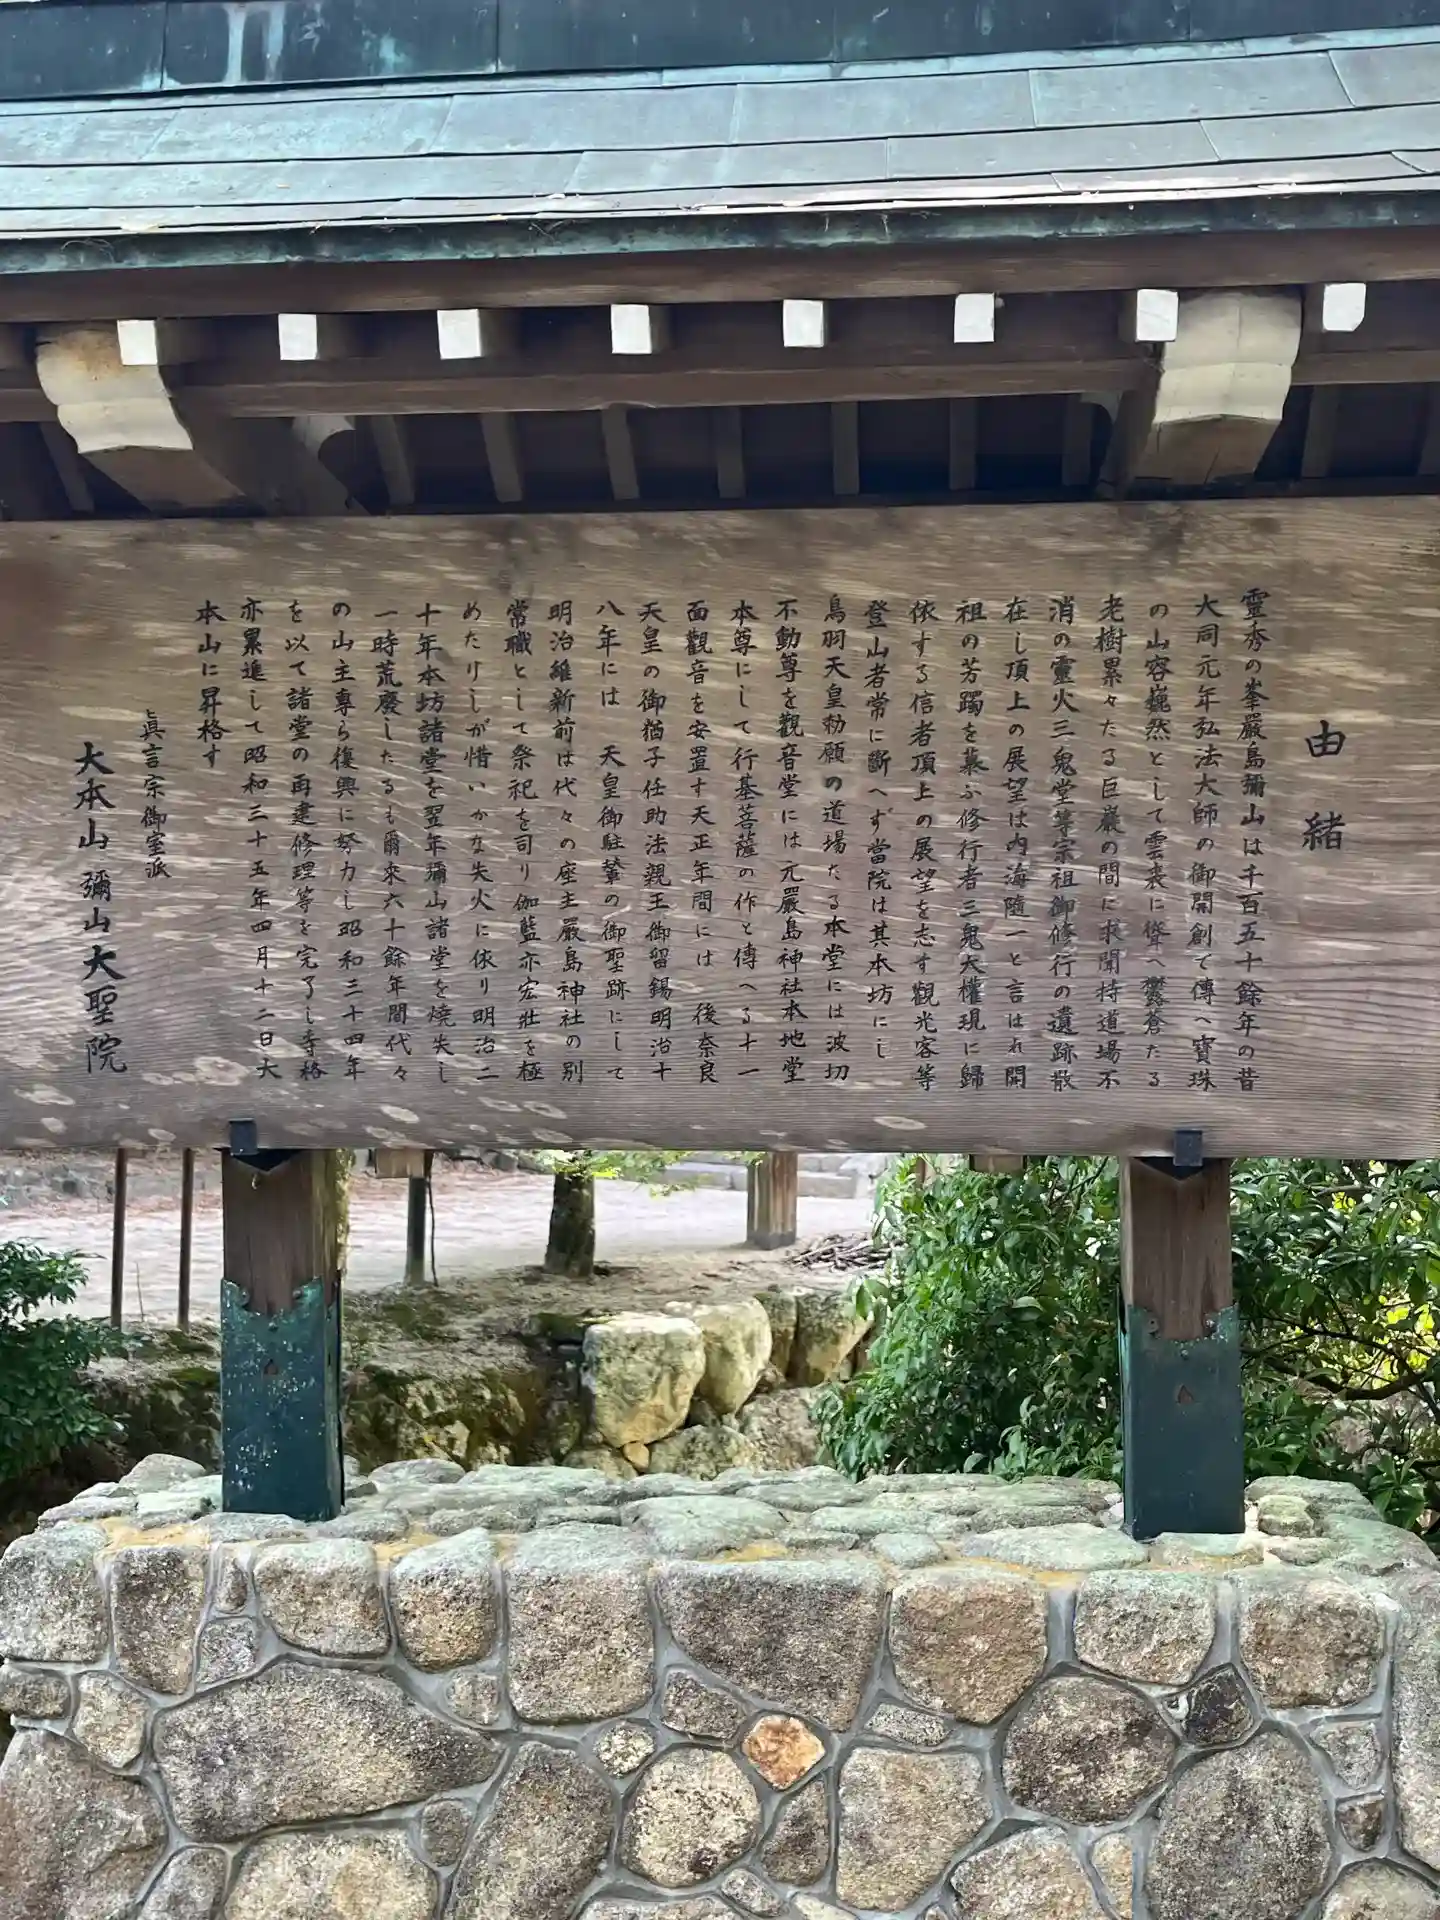 由緒
靈秀の峯嚴島彌山は千百五十餘年の昔
大同元年弘法大師の御開創で傳へ寶珠
の山容巍然として雲表に聳へ鬱蒼たる
老樹累々たる巨巖の間に求聞持道場不
消の靈火三鬼堂等宗祖御修行の遺跡散
在し頂上の展望は内海隨一と言はれ開
祖の芳躅を慕ふ修行者三鬼大權現に歸
依する信者頂上の展望を志す觀光客等
登山者常に斷へず當院は其本坊にし
鳥羽天皇勅願の道場たる本堂には波切
不動尊を觀音堂には元嚴島神社本地堂
本尊にして行基菩薩の作と傳へる十一
面觀音を安置す天正年間には 後奈良
天皇の御猶子任助法親王御留錫明治十
八年には 天皇御駐輦の御聖跡にして
明治維新前は代々の座主嚴島神社の別
常職として祭祀を司り伽藍亦宏壯を極
めたりしが惜いかな失火に依り明治二
十年本坊諸堂を翌年彌山諸堂を燒失し
一時荒廢したるも爾來六十餘年間代々
の山主專ら復興に努力し昭和三十四年
を以て諸堂の再建修理等を完了し寺格
亦累進して昭和三十五年四月十二日大
本山に昇格す
眞言宗御室派
大本山 彌山大聖院